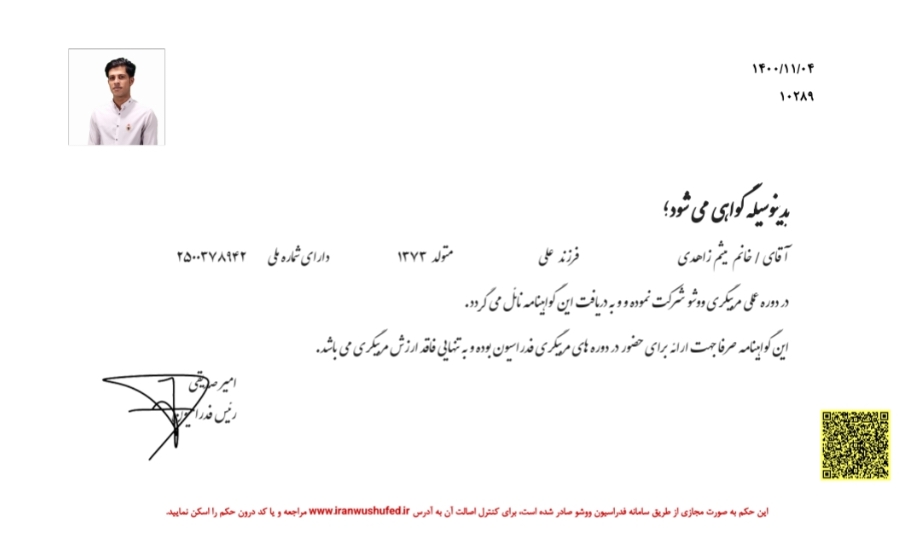 ۱۴۰۰/۱۱/۰۴
۱۰۲۸۹
بدینوسیله گواهی می شود؛
آقای / خانم میثم زاهدی فرزند علی متولد ۱۳۷۳ دارای شماره ملی ۲۵۰۰۳۷۸۹۴۲
در دوره عملی مربیگری ووشو شرکت نموده و و به دریافت این گواهینامه نائل می گردد.
این گواهینامه صرفا جهت ارائه برای حضور در دوره های مربیگری فدراسیون بوده و به تنهایی فاقد ارزش مربیگری می باشد.
امیر صدیقی
رئیس فدراسیون
این حکم به صورت مجازی از طریق سامانه فدراسیون ووشو صادر شده است، برای کنترل اصالت آن به آدرس www.iranwushufed.ir مراجعه و یا کد درون حکم را اسکن نمایید.